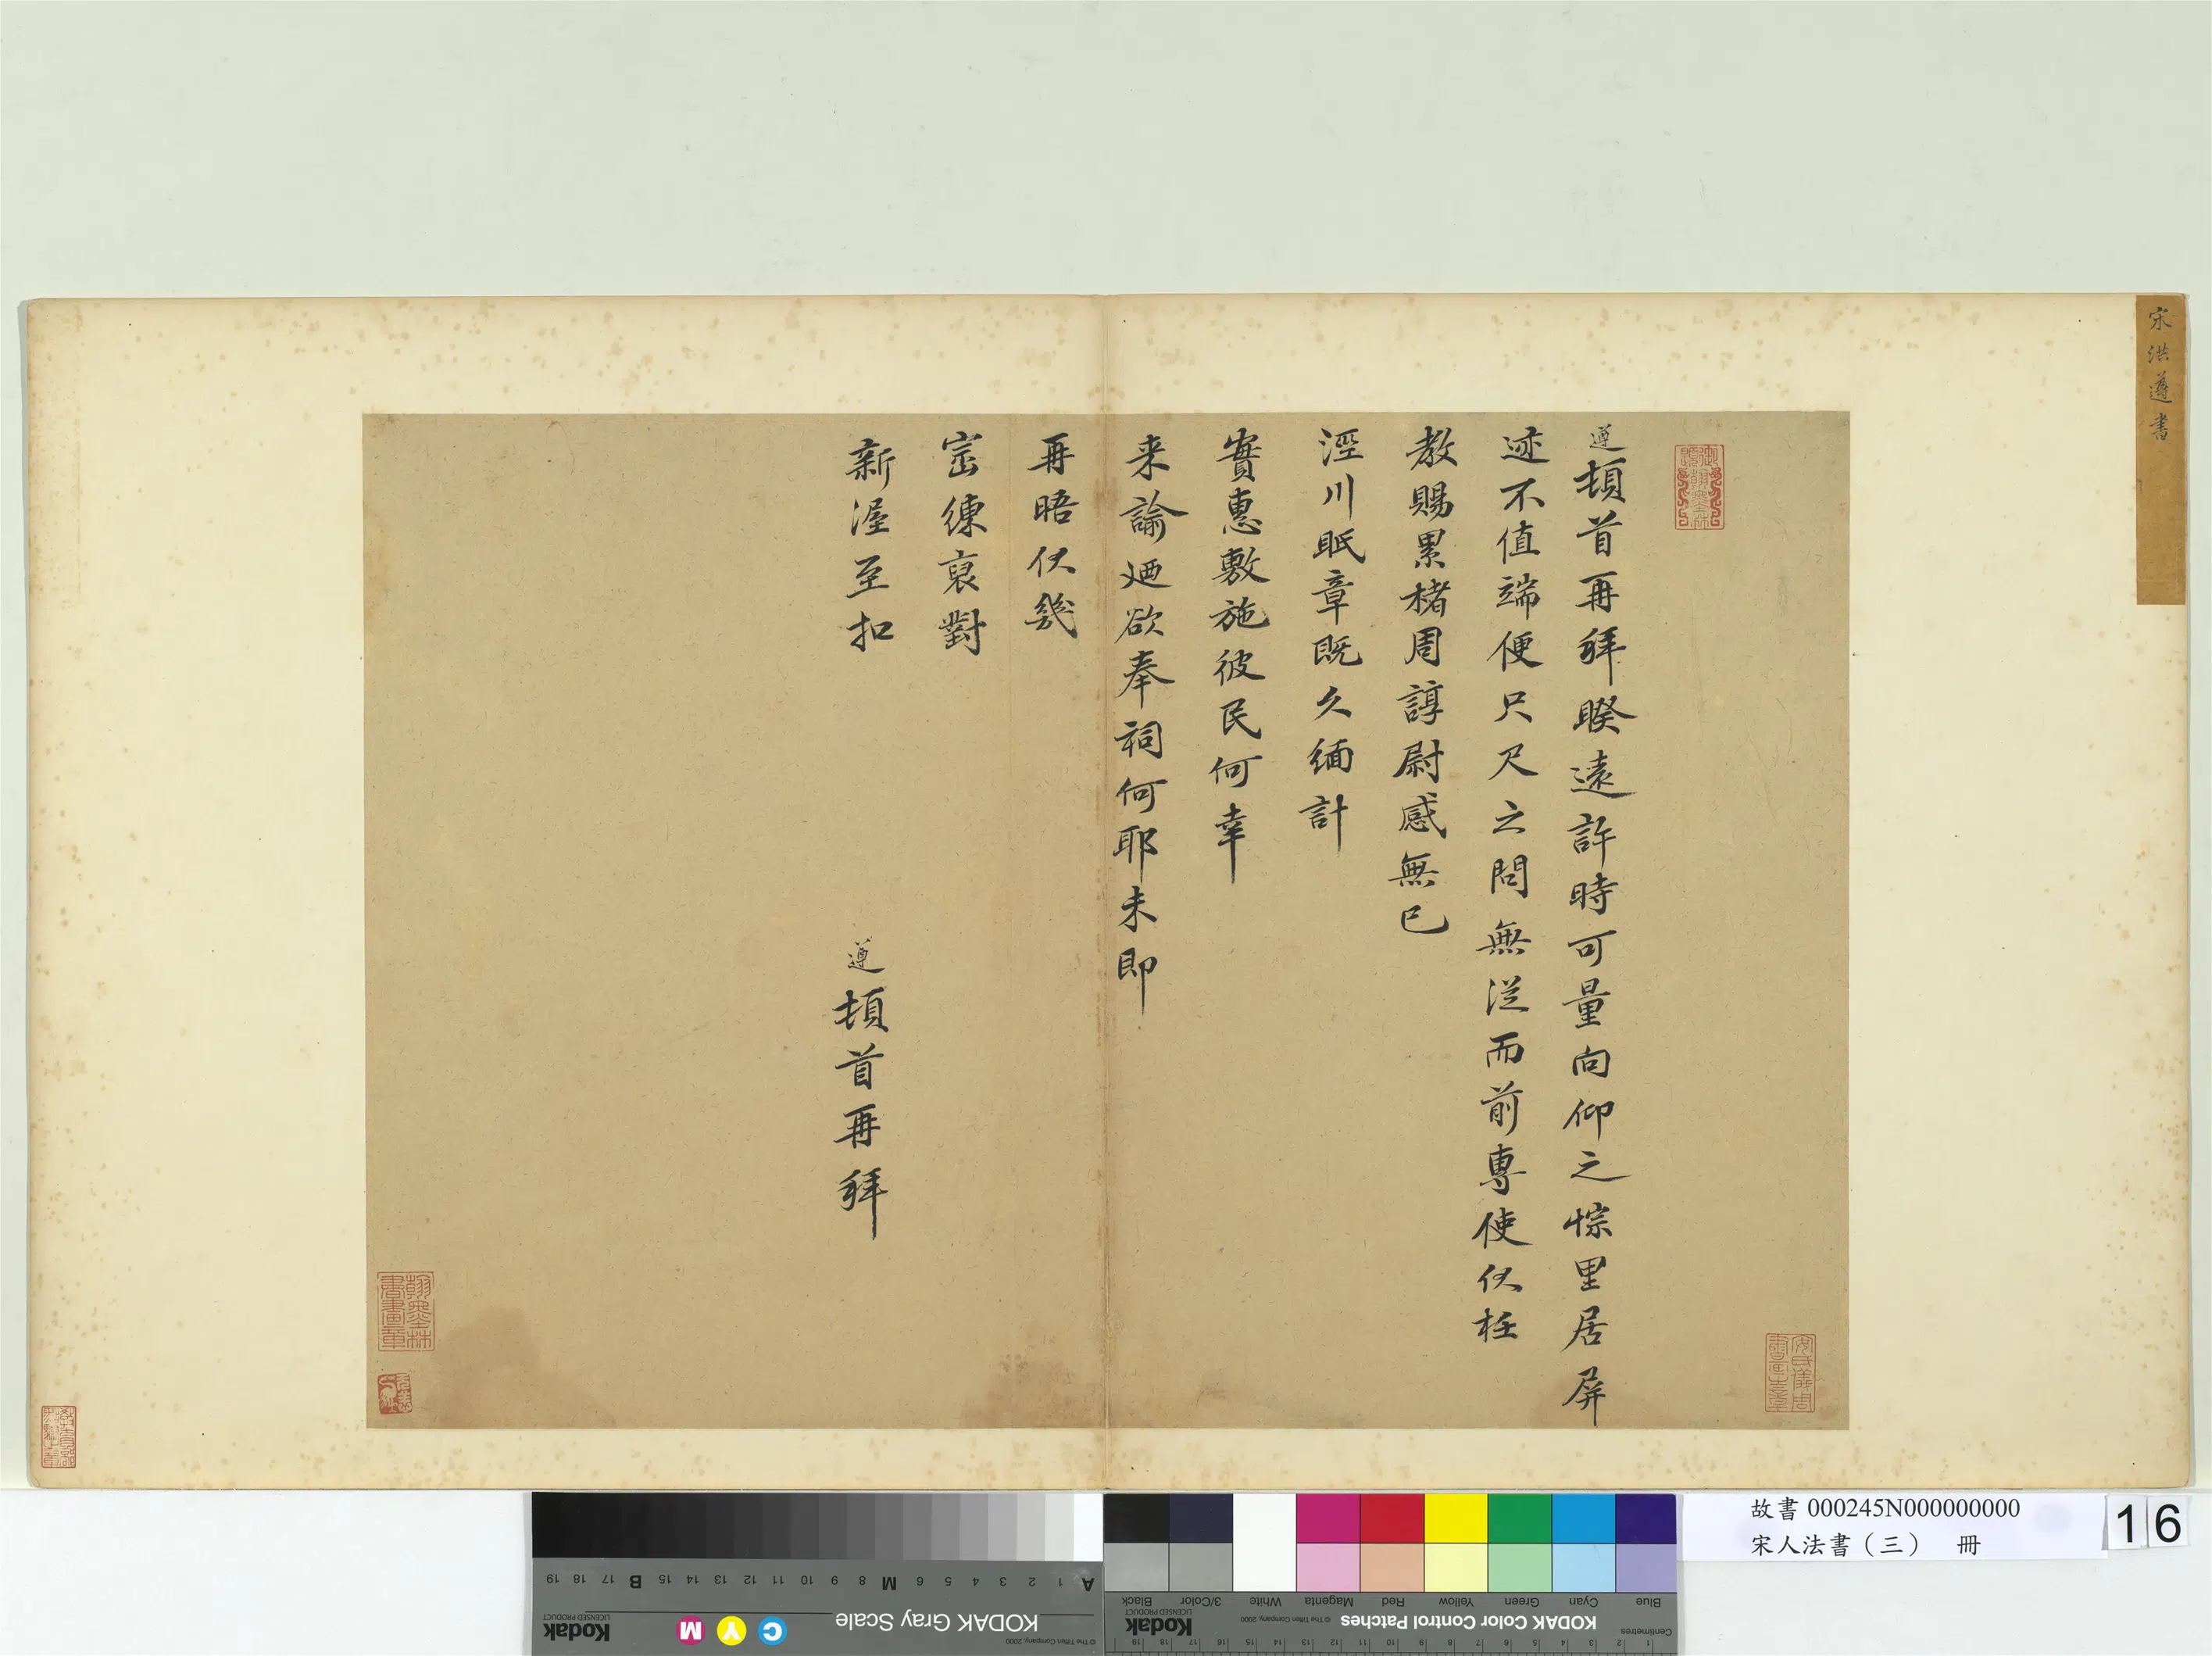 宋洪遵書
遵頓首再拜睽遠許時可量向仰之悰里居屏
迹不值端便只尺之問無從而前專使伏枉
教賜累楮周諄尉感無已
涇川眂章既久緬計
實惠敷施彼民何幸
来諭廼欲奉祠何耶未即
再晤伏幾
崈練裒對
新渥至扣
遵頓首再拜
翰墨林書畫章
安氏儀周書畫之章
故書 000245N000000000
宋人法書（三） 冊
16
KODAK Gray Scale
Kodak
LICENSED PRODUCT
© The Tiffen Company, 2000
C Y M
A 1 2 3 4 5 6 M 8 9 10 11 12 13 14 15 B 17 18 19
KODAK Color Control Patches
Kodak
LICENSED PRODUCT
© The Tiffen Company, 2000
Blue Cyan Green Yellow Red Magenta White 3/Color Black
Centimetres